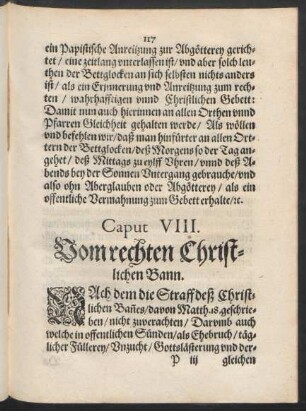 117
ein Papistische Anreitzung zur Abgötterey gerich-
tet / eine zeitlang vnterlassen ist / vnd aber solch leu-
then der Bettglocken an sich selbsten nichts anders
ist / als ein Erinnerung vnd Anreitzung zum rech-
ten / warhafftigen vnnd Christlichen Gebett:
Damit nun auch hierinnen an allen Orthen vnnd
Pfarren Gleichheit gehalten werde / Als wöllen
vnd befehlen wir / daß man hinfürter an allen Or-
tern der Bettglocken / deß Morgens so der Tag an-
gehet / deß Mittags zu eylff Vhren / vnnd deß A-
bends bey der Sonnen Vntergang gebrauche / vnd
also ohn Aberglauben oder Abgötterey / als ein
offentliche Vermahnung zum Gebett erhalte / ꝛc.
Caput VIII.
Vom rechten Christ-
lichen Bann.
NAch dem die Straff deß Christ-
lichen Bañes / davon Matth. 18. geschrie-
ben / nicht zuverachten / Darumb auch
welche in offentlichen Sünden / als Ehebruch / täg-
licher Füllerey / Vnzucht / Gottslästerung vnd der-
P iij gleichen